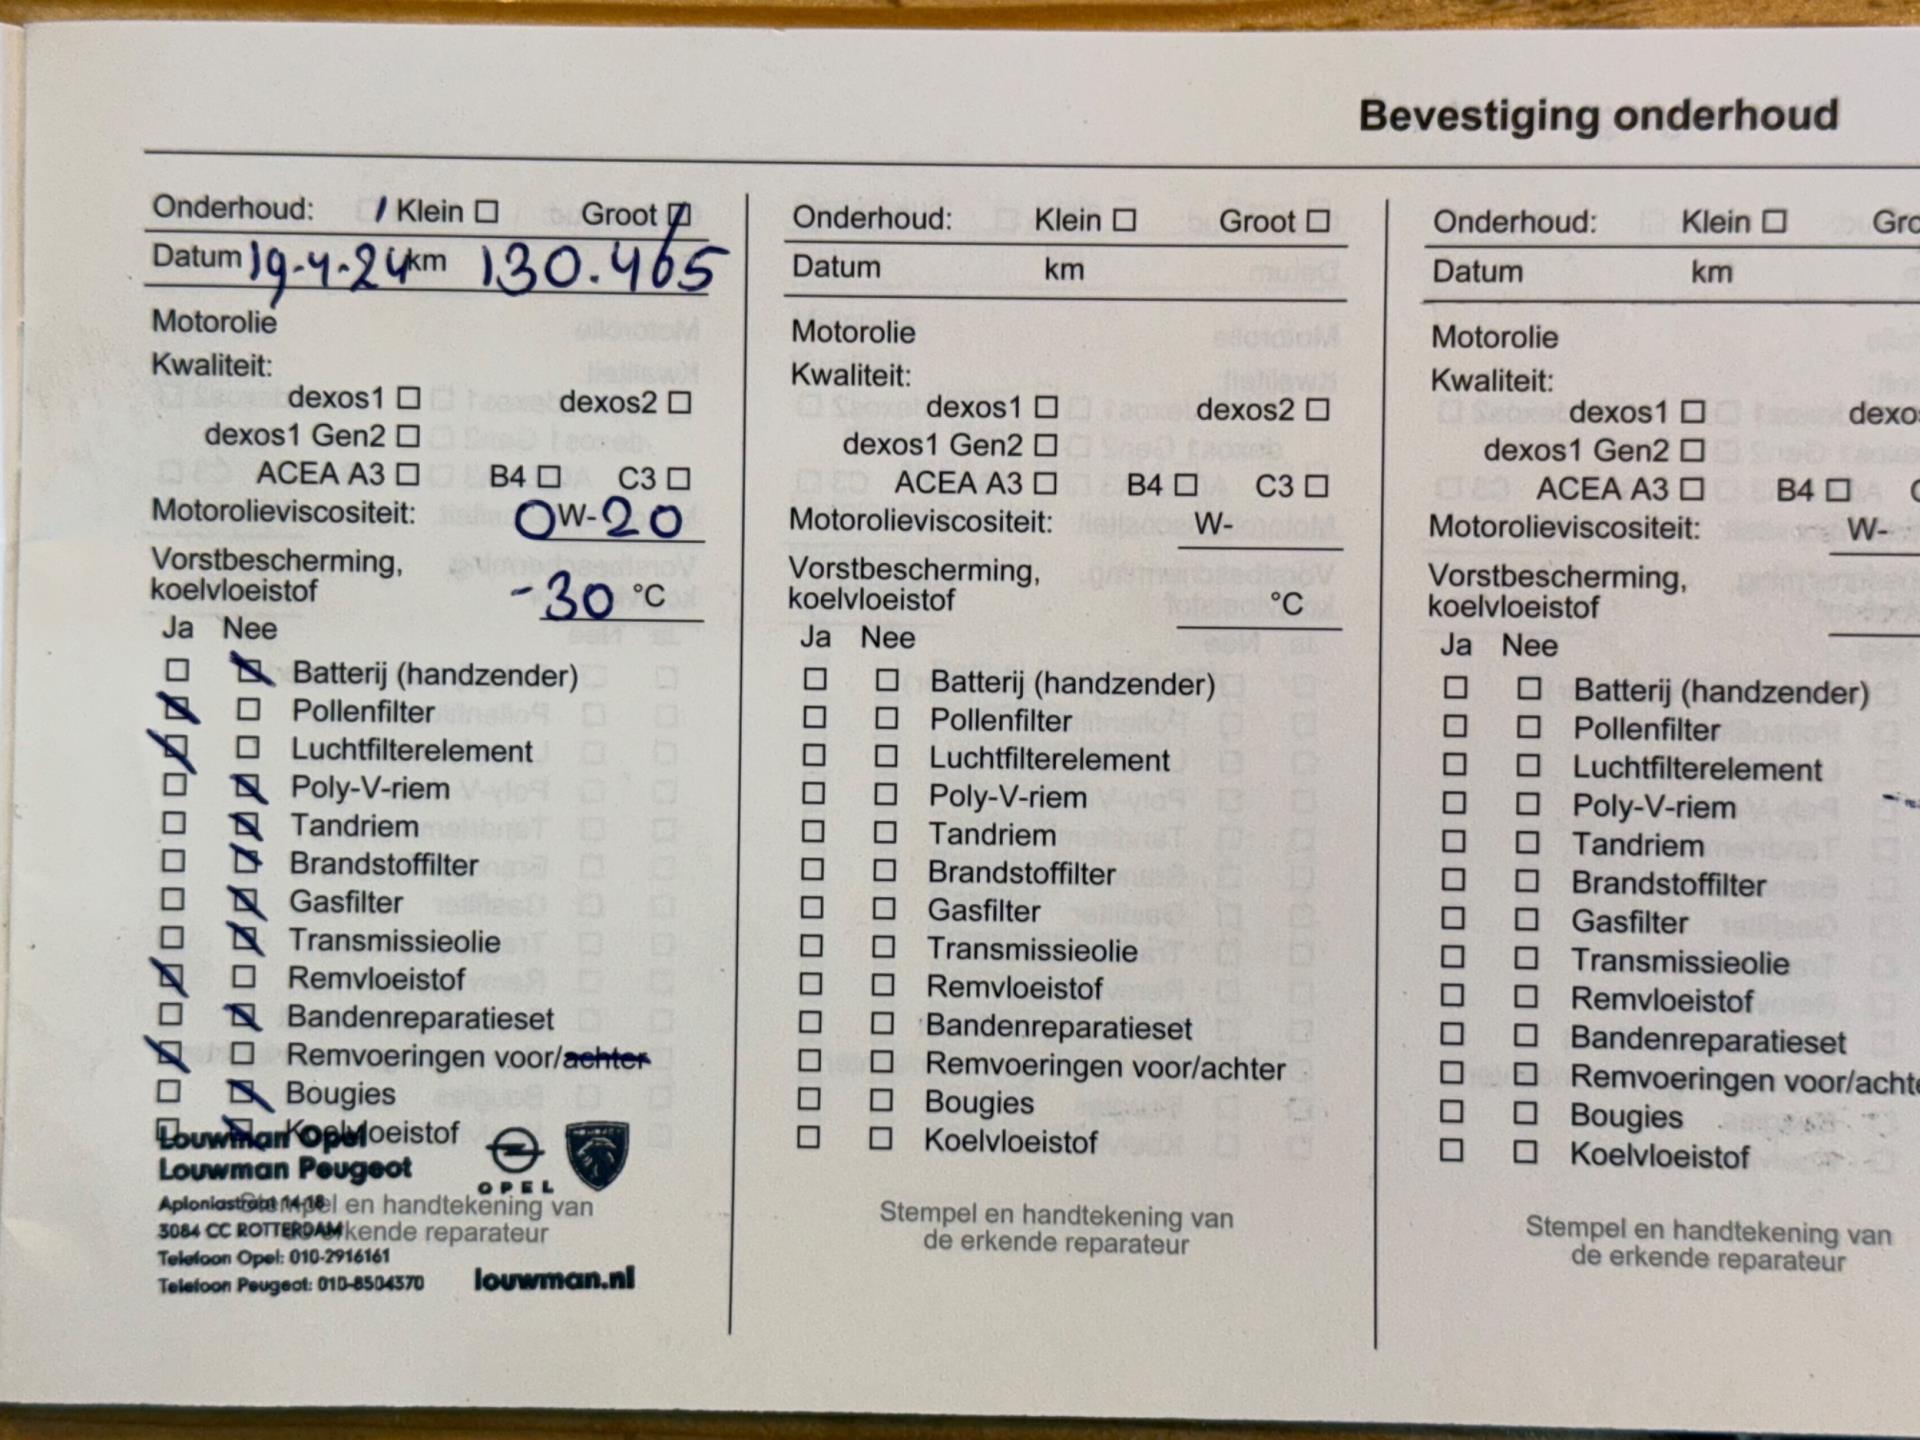 Bevestiging onderhoud
Onderhoud: Klein ☐ Groot ☑
Datum 19-4-24 km 130.465
Motorolie
Kwaliteit:
dexos1 ☐ dexos2 ☐
dexos1 Gen2 ☐
ACEA A3 ☐ B4 ☐ C3 ☐
Motorolieviscositeit: 0W-20
Vorstbescherming,
koelvloeistof -30 °C
Ja Nee
☐ ☑ Batterij (handzender)
☑ ☐ Pollenfilter
☑ ☐ Luchtfilterelement
☐ ☑ Poly-V-riem
☐ ☑ Tandriem
☐ ☑ Brandstoffilter
☐ ☑ Gasfilter
☐ ☑ Transmissieolie
☑ ☐ Remvloeistof
☐ ☑ Bandenreparatieset
☑ ☐ Remvoeringen voor/achter
☐ ☑ Bougies
☐ ☑ Koelvloeistof
Louwman Opel
Louwman Peugeot
OPEL
Stempel en handtekening van
de erkende reparateur
Aploniastraat 14-18
3084 CC ROTTERDAM
Telefoon Opel: 010-2916161
Telefoon Peugeot: 010-8504370
louwman.nl
Onderhoud: Klein ☐ Groot ☐
Datum km
Motorolie
Kwaliteit:
dexos1 ☐ dexos2 ☐
dexos1 Gen2 ☐
ACEA A3 ☐ B4 ☐ C3 ☐
Motorolieviscositeit: W-
Vorstbescherming,
koelvloeistof °C
Ja Nee
☐ ☐ Batterij (handzender)
☐ ☐ Pollenfilter
☐ ☐ Luchtfilterelement
☐ ☐ Poly-V-riem
☐ ☐ Tandriem
☐ ☐ Brandstoffilter
☐ ☐ Gasfilter
☐ ☐ Transmissieolie
☐ ☐ Remvloeistof
☐ ☐ Bandenreparatieset
☐ ☐ Remvoeringen voor/achter
☐ ☐ Bougies
☐ ☐ Koelvloeistof
Stempel en handtekening van
de erkende reparateur
Onderhoud: Klein ☐ Gro
Datum km
Motorolie
Kwaliteit:
dexos1 ☐ dexos
dexos1 Gen2 ☐
ACEA A3 ☐ B4 ☐ C
Motorolieviscositeit: W-
Vorstbescherming,
koelvloeistof
Ja Nee
☐ ☐ Batterij (handzender)
☐ ☐ Pollenfilter
☐ ☐ Luchtfilterelement
☐ ☐ Poly-V-riem
☐ ☐ Tandriem
☐ ☐ Brandstoffilter
☐ ☐ Gasfilter
☐ ☐ Transmissieolie
☐ ☐ Remvloeistof
☐ ☐ Bandenreparatieset
☐ ☐ Remvoeringen voor/achte
☐ ☐ Bougies
☐ ☐ Koelvloeistof
Stempel en handtekening van
de erkende reparateur